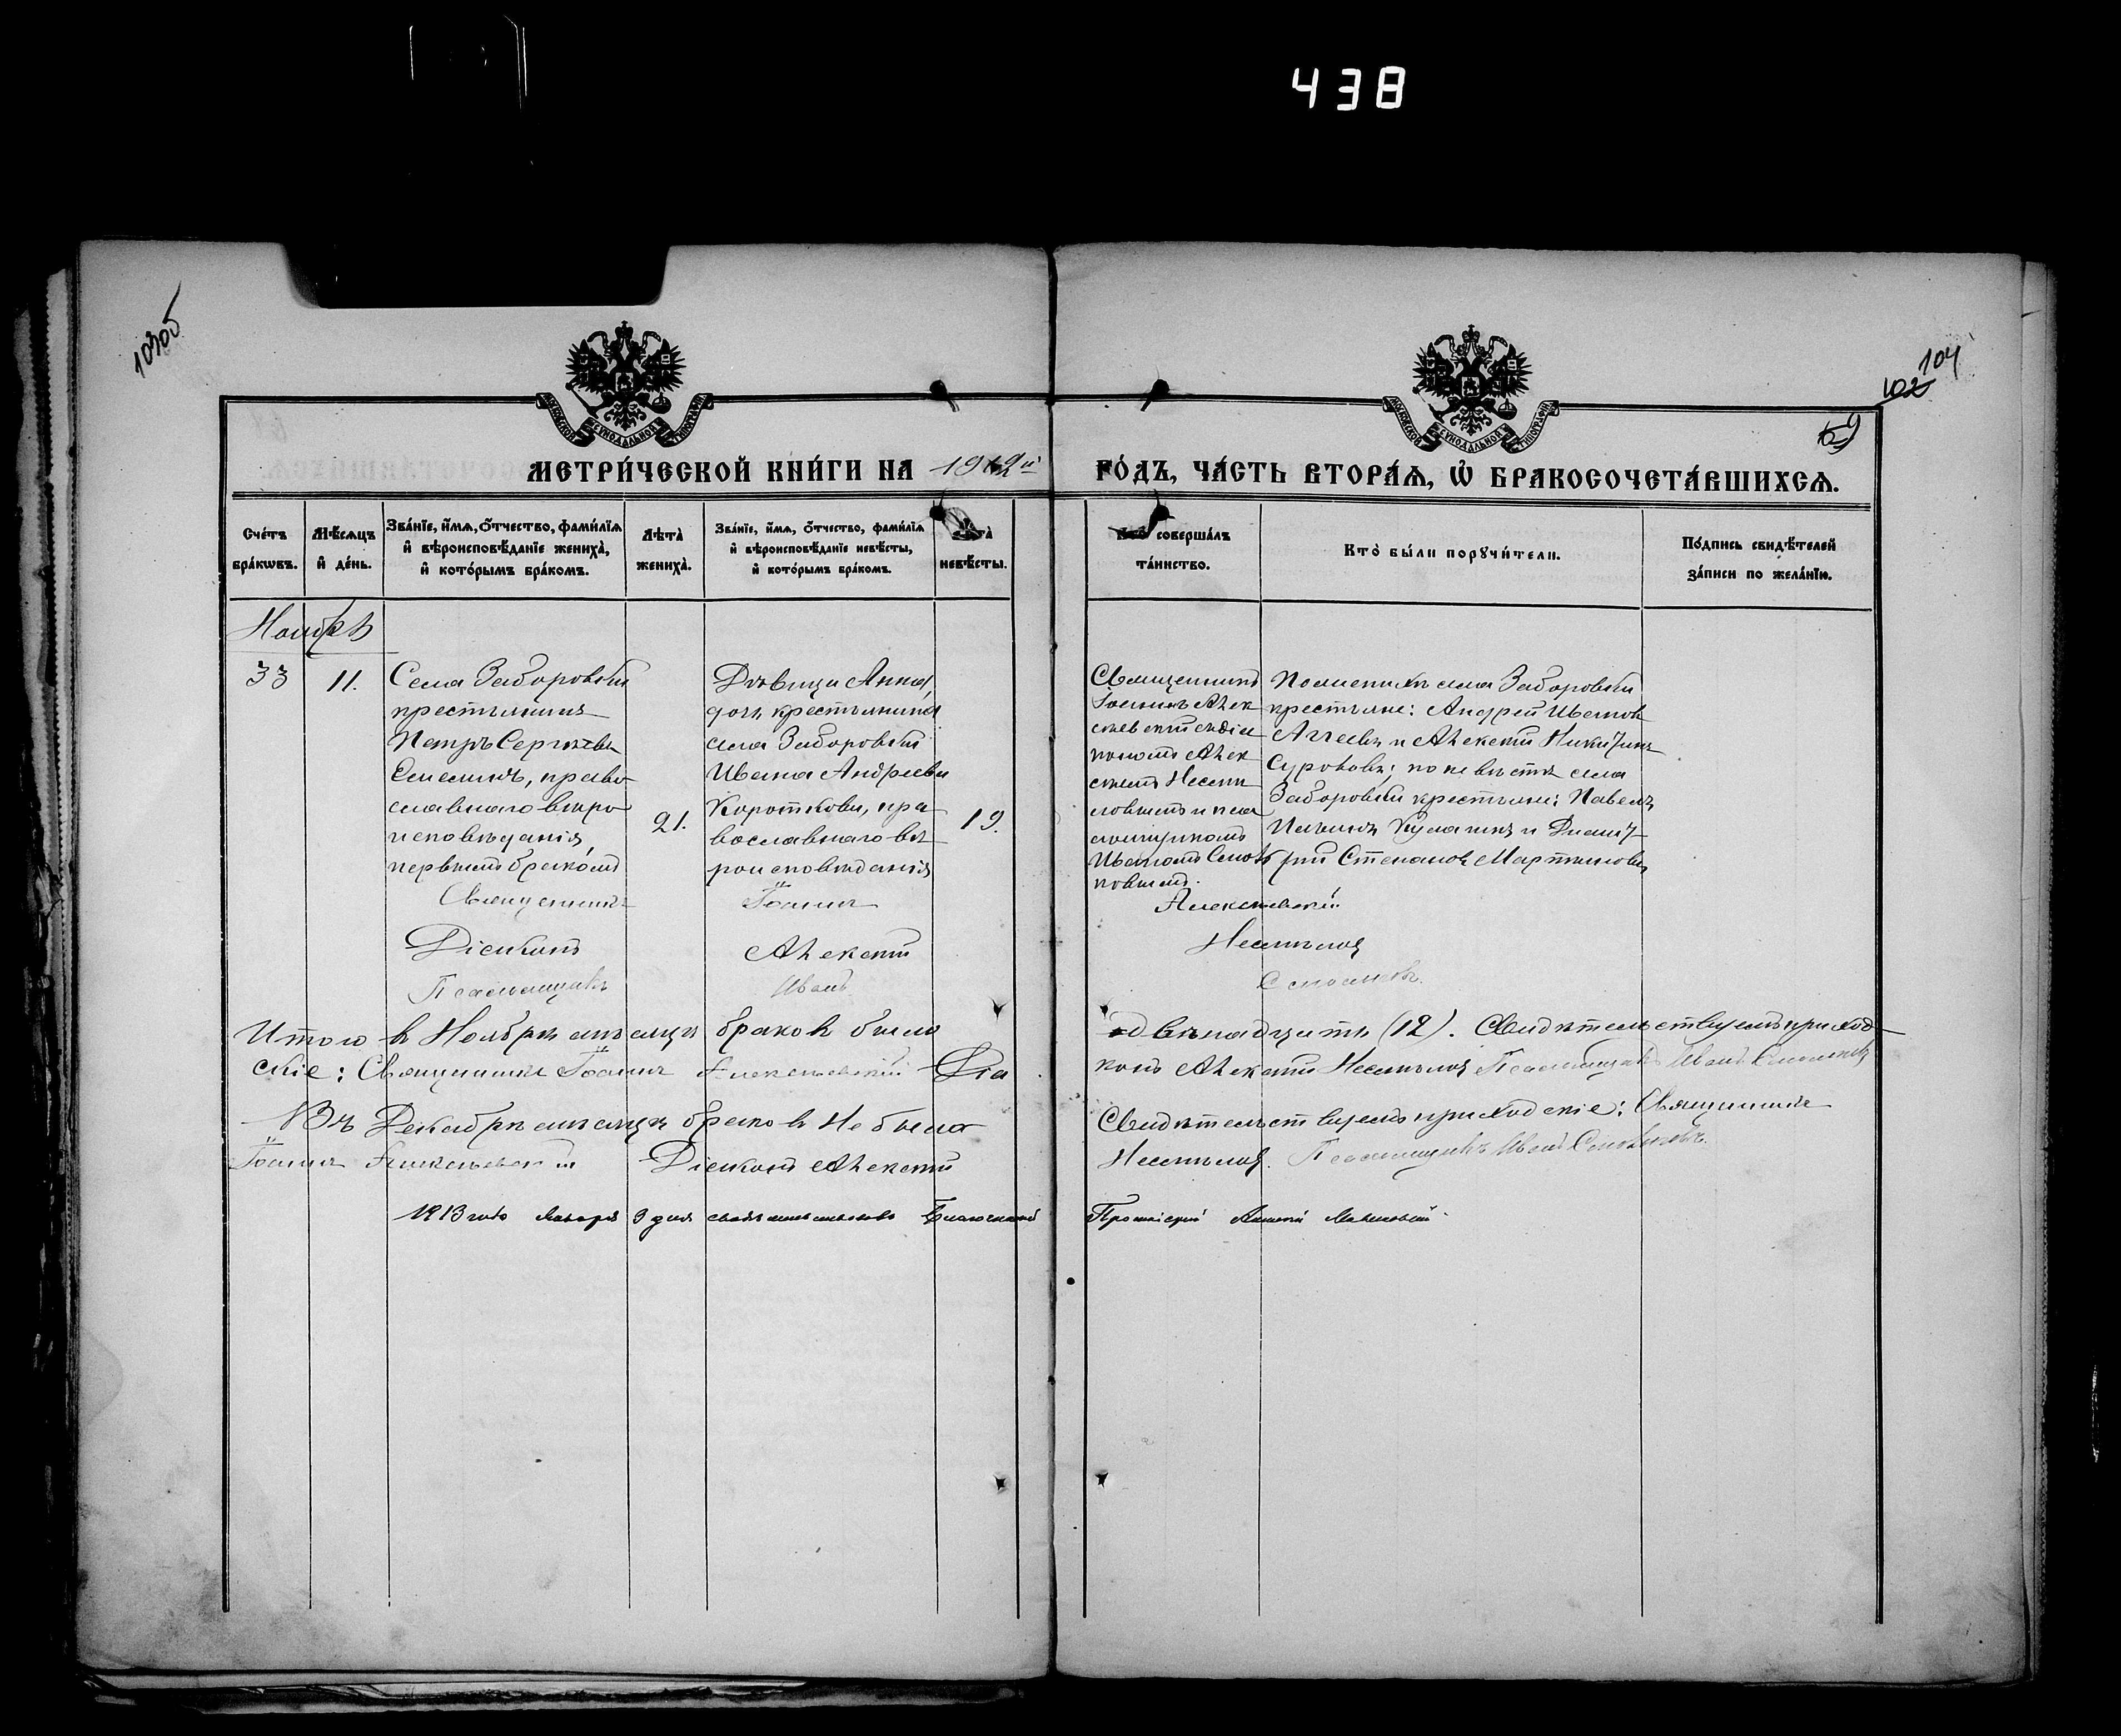 438
103об
104
102
59
МЕТРИ́ЧЕСКОЙ КНИ́ГИ НА 1912й ГО́ДЪ, ЧА́СТЬ ВТОРА́Я, Ѡ БРАКОСОЧЕТА́ВШИХСЯ.
Сче́тъ бра́кѡвъ.
Мѣ́сяцъ и҆ де́нь.
Зва́нїе, и҆́мя, ѻ҆́тчество, фами́лїя и҆ вѣроисповѣ́данїе жениха̀, и҆ кото́рымъ бра́комъ.
Лѣта̀ жениха̀.
Зва́нїе, и҆́мя, ѻ҆́тчество, фами́лїя и҆ вѣроисповѣ́данїе невѣ́сты, и҆ кото́рымъ бра́комъ.
Лѣта̀ невѣ́сты.
Кто̀ соверша́лъ та́инство.
Кто̀ бы́ли порꙋчи́тели.
По́дпись свидѣ́телей за́писи по жела́нїю.
Ноябрь
33
11.
Села Заборовки
крестьянинъ
Петръ Сергѣевъ
православнаго вѣро
исповѣданія,
первымъ бракомъ
21.
Дѣвица Анна,
дочь крестьянина
села Заборовки
Ивана Андреева
Короткова, пра
вославнаго вѣ
роисповѣданія
19.
Священникъ
Іоаннъ Алек
сѣевскій съ діа
кономъ Алек
сѣемъ Несмѣ
ловымъ и пса
ломщикомъ
Иваномъ
По женихѣ села Заборовки
крестьяне: Андрей Ивановъ
Аггеевъ и Алексѣй Никитинъ
Сурововъ; по невѣстѣ села
Заборовки крестьяне: Павелъ
и Димит
рій Степановъ Мартыновъ
Священникъ Іоаннъ Алексѣевскій
Діаконъ Алексѣй Несмѣловъ
Псаломщикъ Иванъ
Итого въ Ноябрѣ мѣсяцѣ браковъ было двѣнадцать (12). Свидѣтельствуемъ приход
скіе: Священникъ Іоаннъ Алексѣевскій Діа конъ Алексѣй Несмѣловъ Псаломщикъ Иванъ
Въ Декабрѣ мѣсяцѣ браковъ не было Свидѣтельствуемъ приходскіе: Священникъ
Іоаннъ Алексѣевскій Діаконъ Алексѣй Несмѣловъ. Псаломщикъ Иванъ
1913 года Января 9 дня свидѣтельствовалъ Благочинный Протоіерей